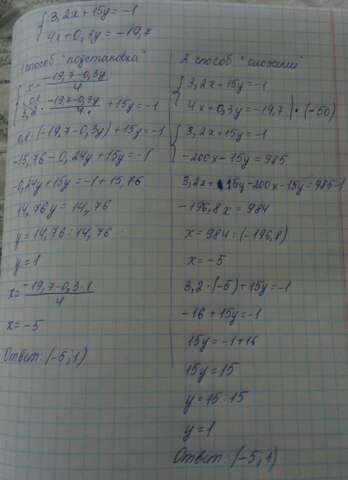 { 3,2x + 15y = -1
4x + 0,3y = -19,7
1 способ "подстановка"
x = (-19,7-0,3y)/4
3,2 · (-19,7-0,3y)/4 + 15y = -1
0,8·(-19,7-0,3y)+15y=-1
-15,76-0,24y+15y=-1
-0,24y+15y=-1+15,76
14,76y=14,76
y=14,76:14,76
y=1
x=(-19,7-0,3·1)/4
x=-5
Ответ: (-5;1)
2 способ "сложения"
{ 3,2x+15y=-1
4x+0,3y=-19,7 | ·(-50)
{ 3,2x+15y=-1
-200x-15y=985
3,2x+15y-200x-15y=985-1
-196,8x=984
x=984:(-196,8)
x=-5
3,2·(-5)+15y=-1
-16+15y=-1
15y=-1+16
15y=15
y=15:15
y=1
Ответ: (-5;1)